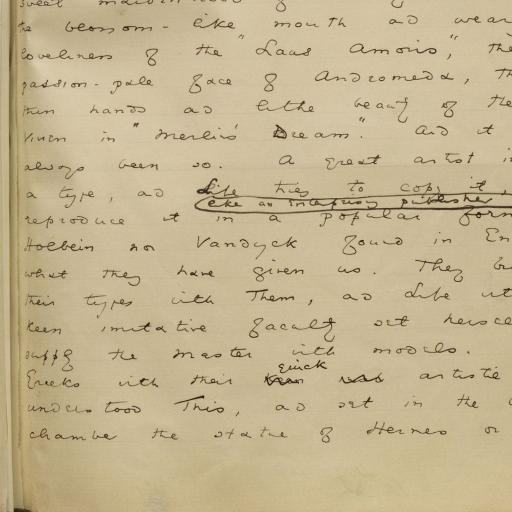 sweet maidenhood of
the blossom-like mouth and wear
loveliness of the "Laus Amoris", the
passion-pale face of Andromeda, the
thin hands and lithe beauty of the
Vivien in "Merlin's Dream". And it
always been so. A great artist in
a type, and Life tries to copy it,
like an enterprising publisher
reproduce it in a popular form
Holbein nor Vandyck found in En
what they have given us. They b
their types with them, and Life
keen imitative faculty set herse
supply the master with models.
quick
Greeks with their keen artistic
understood this, and set in the
chamber the statue of Hermes or